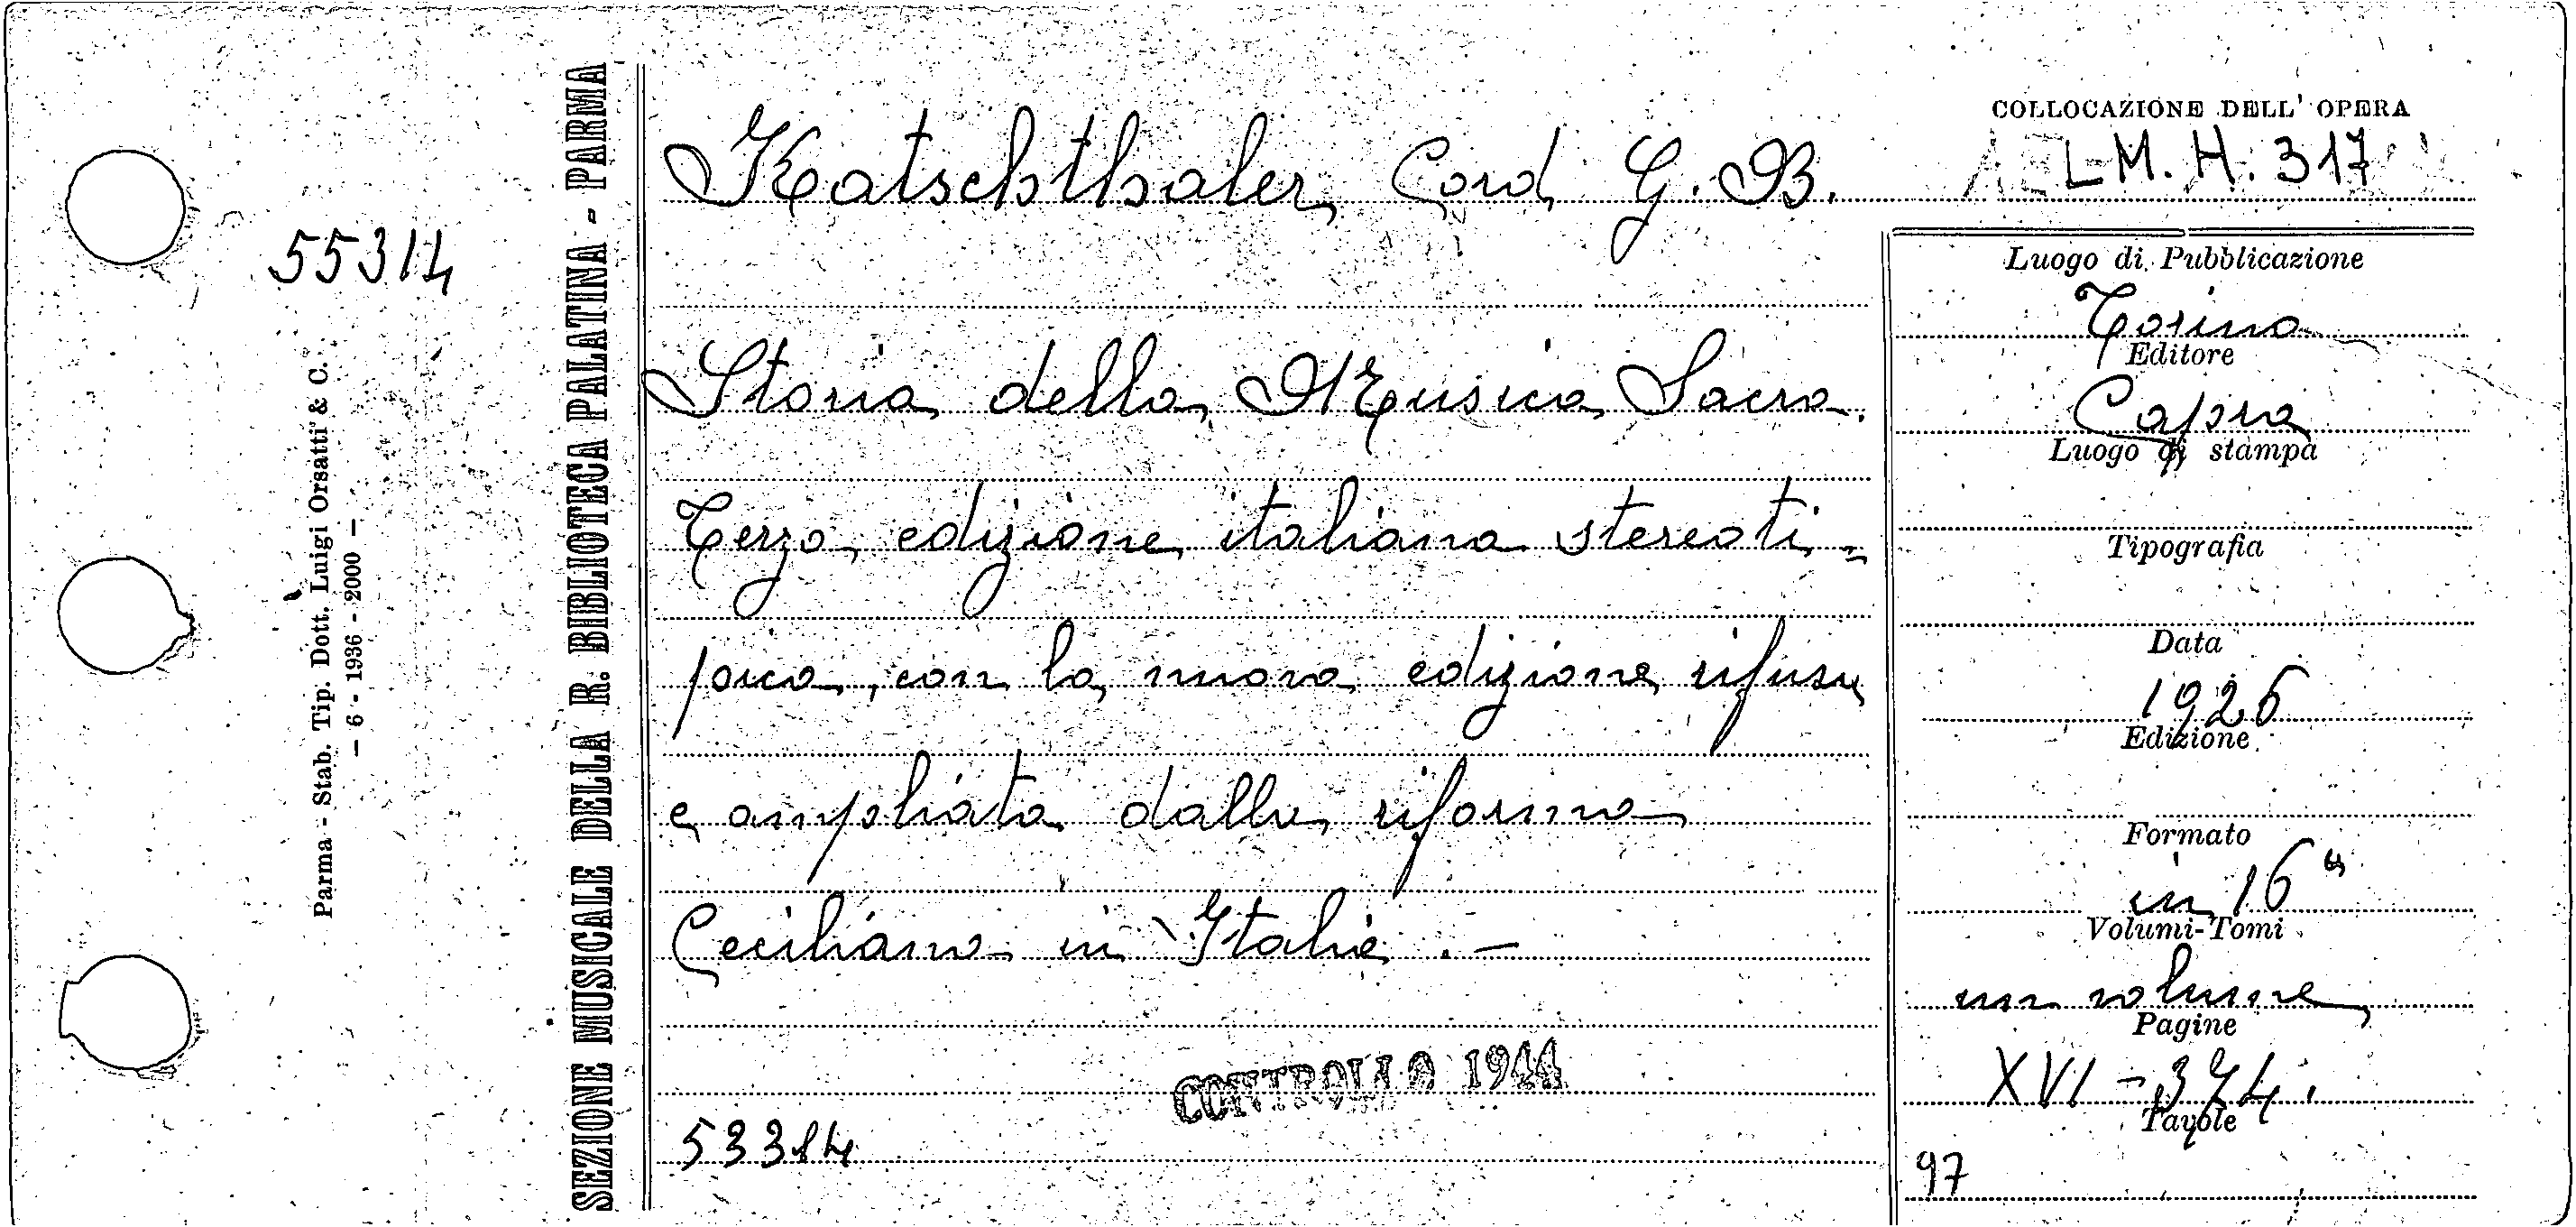 COLLOCAZIONE DELL' OPERA
L M. H. 317
Katschthaler Card G. B.
55314
Storia della Musica Sacra.
Terza edizione italiana stereoti=
pica, con la nuova edizione rifusa
e ampliata dalla riforma
Ceciliana in Italia . –
CONTROLLO 1944
53314
Luogo di Pubblicazione
Torino
Editore
Capra
Luogo di stampa
Tipografia
Data
1926
Edizione
Formato
in 16°
Volumi-Tomi
un volume
Pagine
XVI – 374.
Tavole
97
SEZIONE MUSICALE DELLA R. BIBLIOTECA PALATINA - PARMA
Parma - Stab. Tip. Dott. Luigi Orsatti & C.
— 6 - 1936 - 2000 —